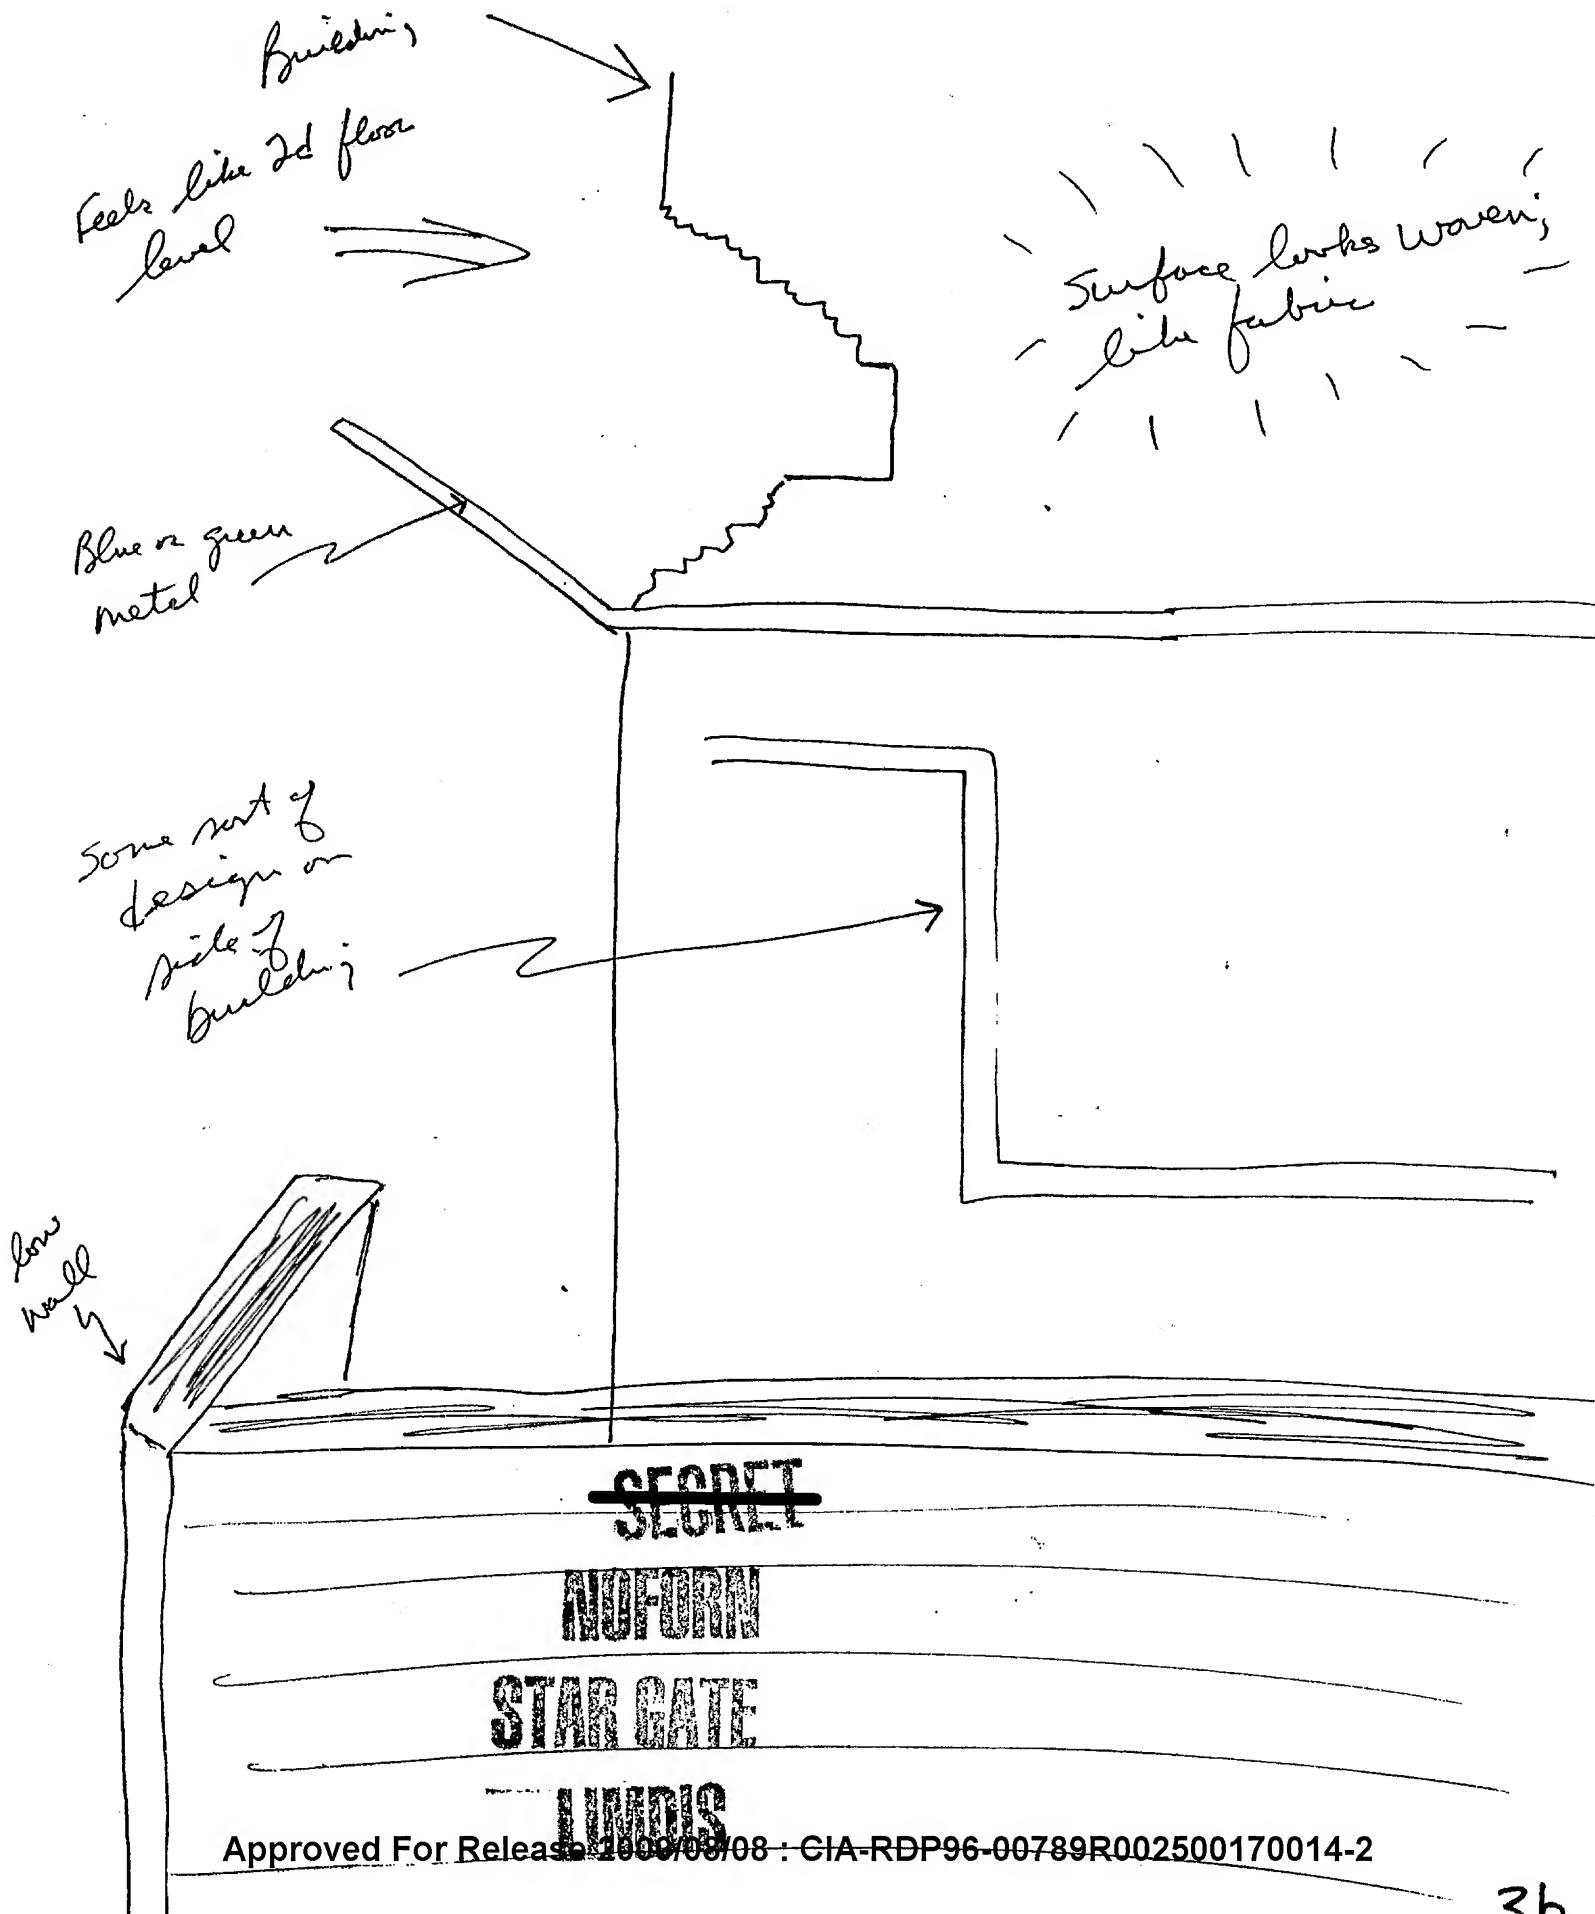 Building
Feels like 2d floor
level
Surface looks woven,
like fabric
Blue or green
metal
Some sort of
design on
side of
building
low
wall
SECRET
NOFORN
STAR GATE
LIMDIS
Approved For Release 2000/08/08 : CIA-RDP96-00789R002500170014-2
3b